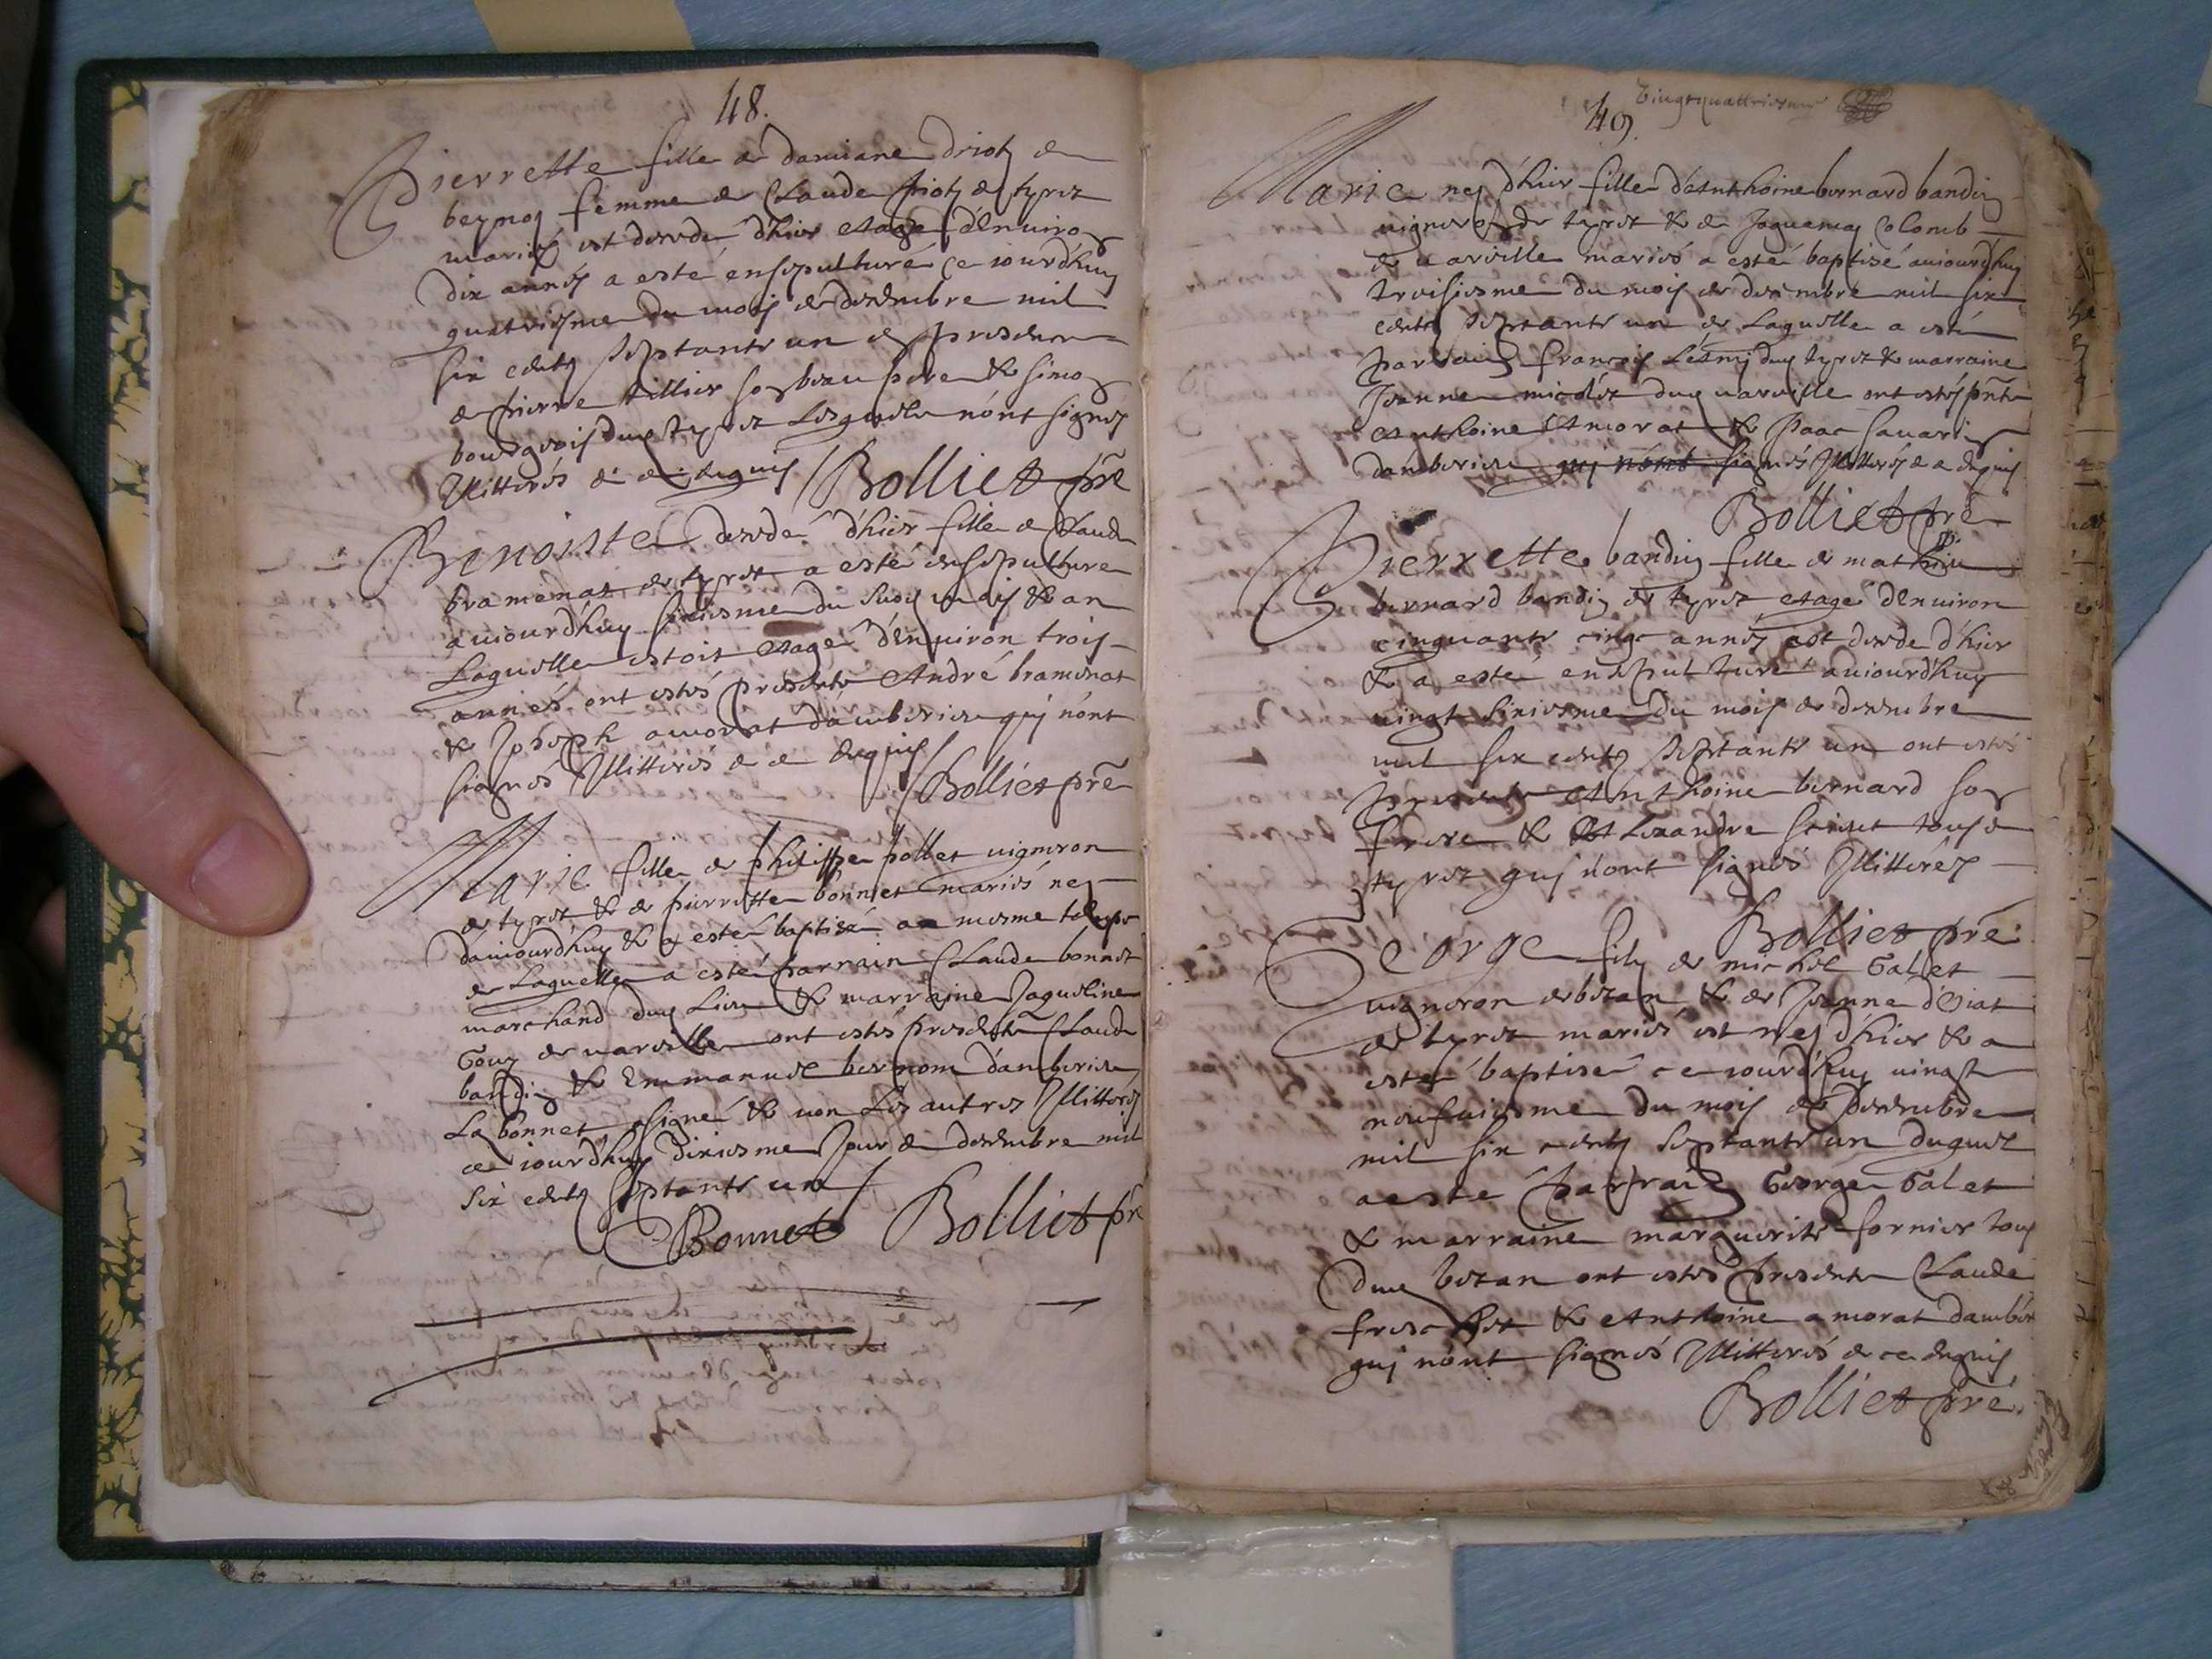 48.
Pierrette fille de damiane driotz de
beynoz femme de Claude de tyret
mariez est decedé d'hier etage d'enuiron
dix années a esté ensepulturé ce iourd'huy
quatriesme du mois de decembre mil
six centz septante un es presence
de pierre tillier son beau pere & simon
bourgeois du tyret Lesquels n'ont signés
Illitteréz de ce requis Bolliet pre
Benoiste decedé d'hier fille de Claude
bramerat de tyret a esté ensepulturé
auiourd'huy sixiesme du susd mois & an
Laquelle estoit etagé d'enuiron trois
années ont estés presents André bramerat
& Joseph amorat d'amberieu quj n'ont
signés Illitterés de ce requis
Bolliet pre
Marie fille de philippe pollet uigneron
de tyret & de pierrette bonnet mariés ney
d'auiourd'huy & a esté baptizé au mesme temps
de Laquelle a esté parrain Claude bonnet
marchand dud Lieu & marraine Jaqueline
Gouy de uareille ont estés presents Claude
bandin & Emmanuel bernom d'amberieu
Led bonnet signé & non Les autres Illitterés
ce iourd'huy dixiesme Jour de decembre mil
six centz septante un
Bonnet Bolliet pre
uingtquattriesme
49.
Marie ney d'hier fille d'Anthoine bernard bandin
uigneron de tyret & de Jaquema Colomb
de uareille mariés a esté baptisé auiourd'huy
troisiesme du mois de decembre mil six
centz septante un de Laquelle a esté
parrain françois dud tyret & marraine
Jeanne nicolet dud uareille ont estés pnts
Anthoine Amorat & Isaac sauarin
d'amberieu quj n'ont signés Illitterés de ce requis
Bolliet pre
Pierrette bandin fille de mathieu
bernard bandin de tyret etagé d'enuiron
cinquante cinq années est decedé d'hier
& a esté ensepulturé auiourd'huy
uingt sixiesme du mois de decembre
mil six centz septante un ont estés
presents Anthoine bernard son
frere & Alexandre tous de
tyret quj n'ont signés Illitteréz
Bolliet pre
George filz de michel Galet
uigneron de bezan & de Jeanne
de tyret mariés est ney d'hier & a
esté baptisé ce iourd'huy uingt
neufuiesme du mois de decembre
mil six centz septante un duquel
a esté parrain George Galet
& marraine marguerite fornier tous
dud bezan ont estés presents Claude
& Anthoine amorat d'amber
quj n'ont signés Illitterés de ce requis
Bolliet pre